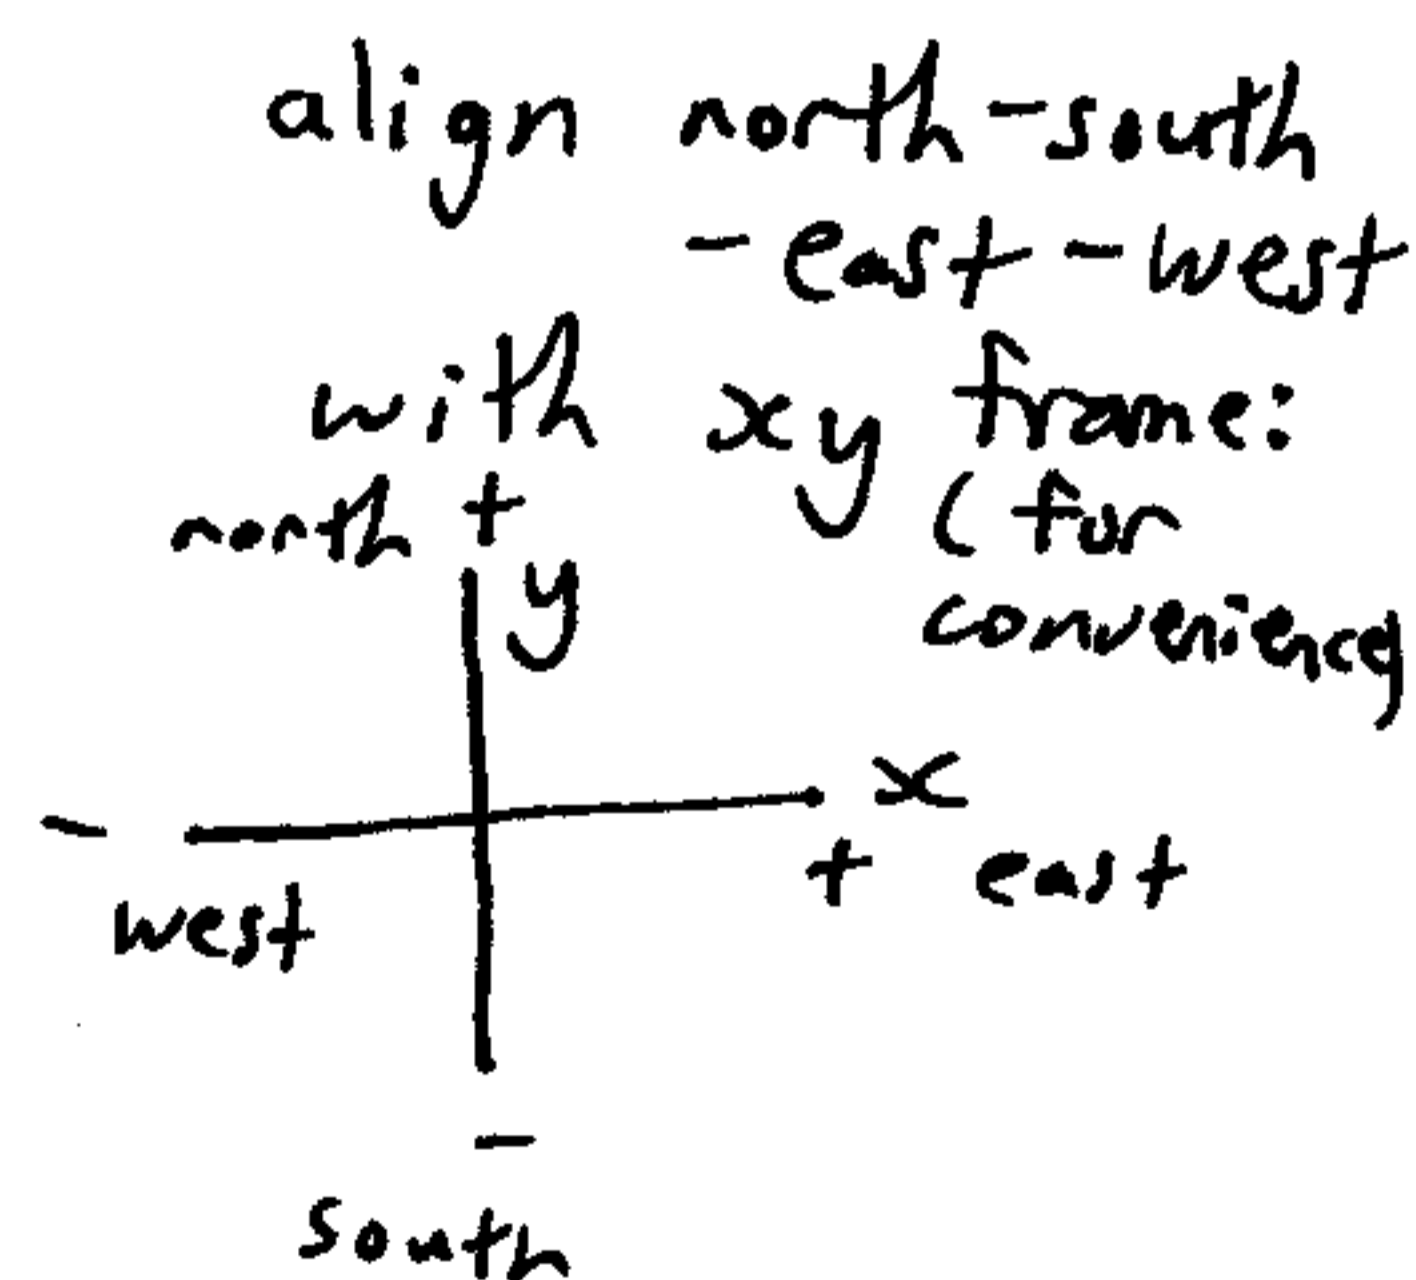 align north-south
-east-west
with xy frame:
(for
convenience)
north +
y
x
-
+ east
west
-
south